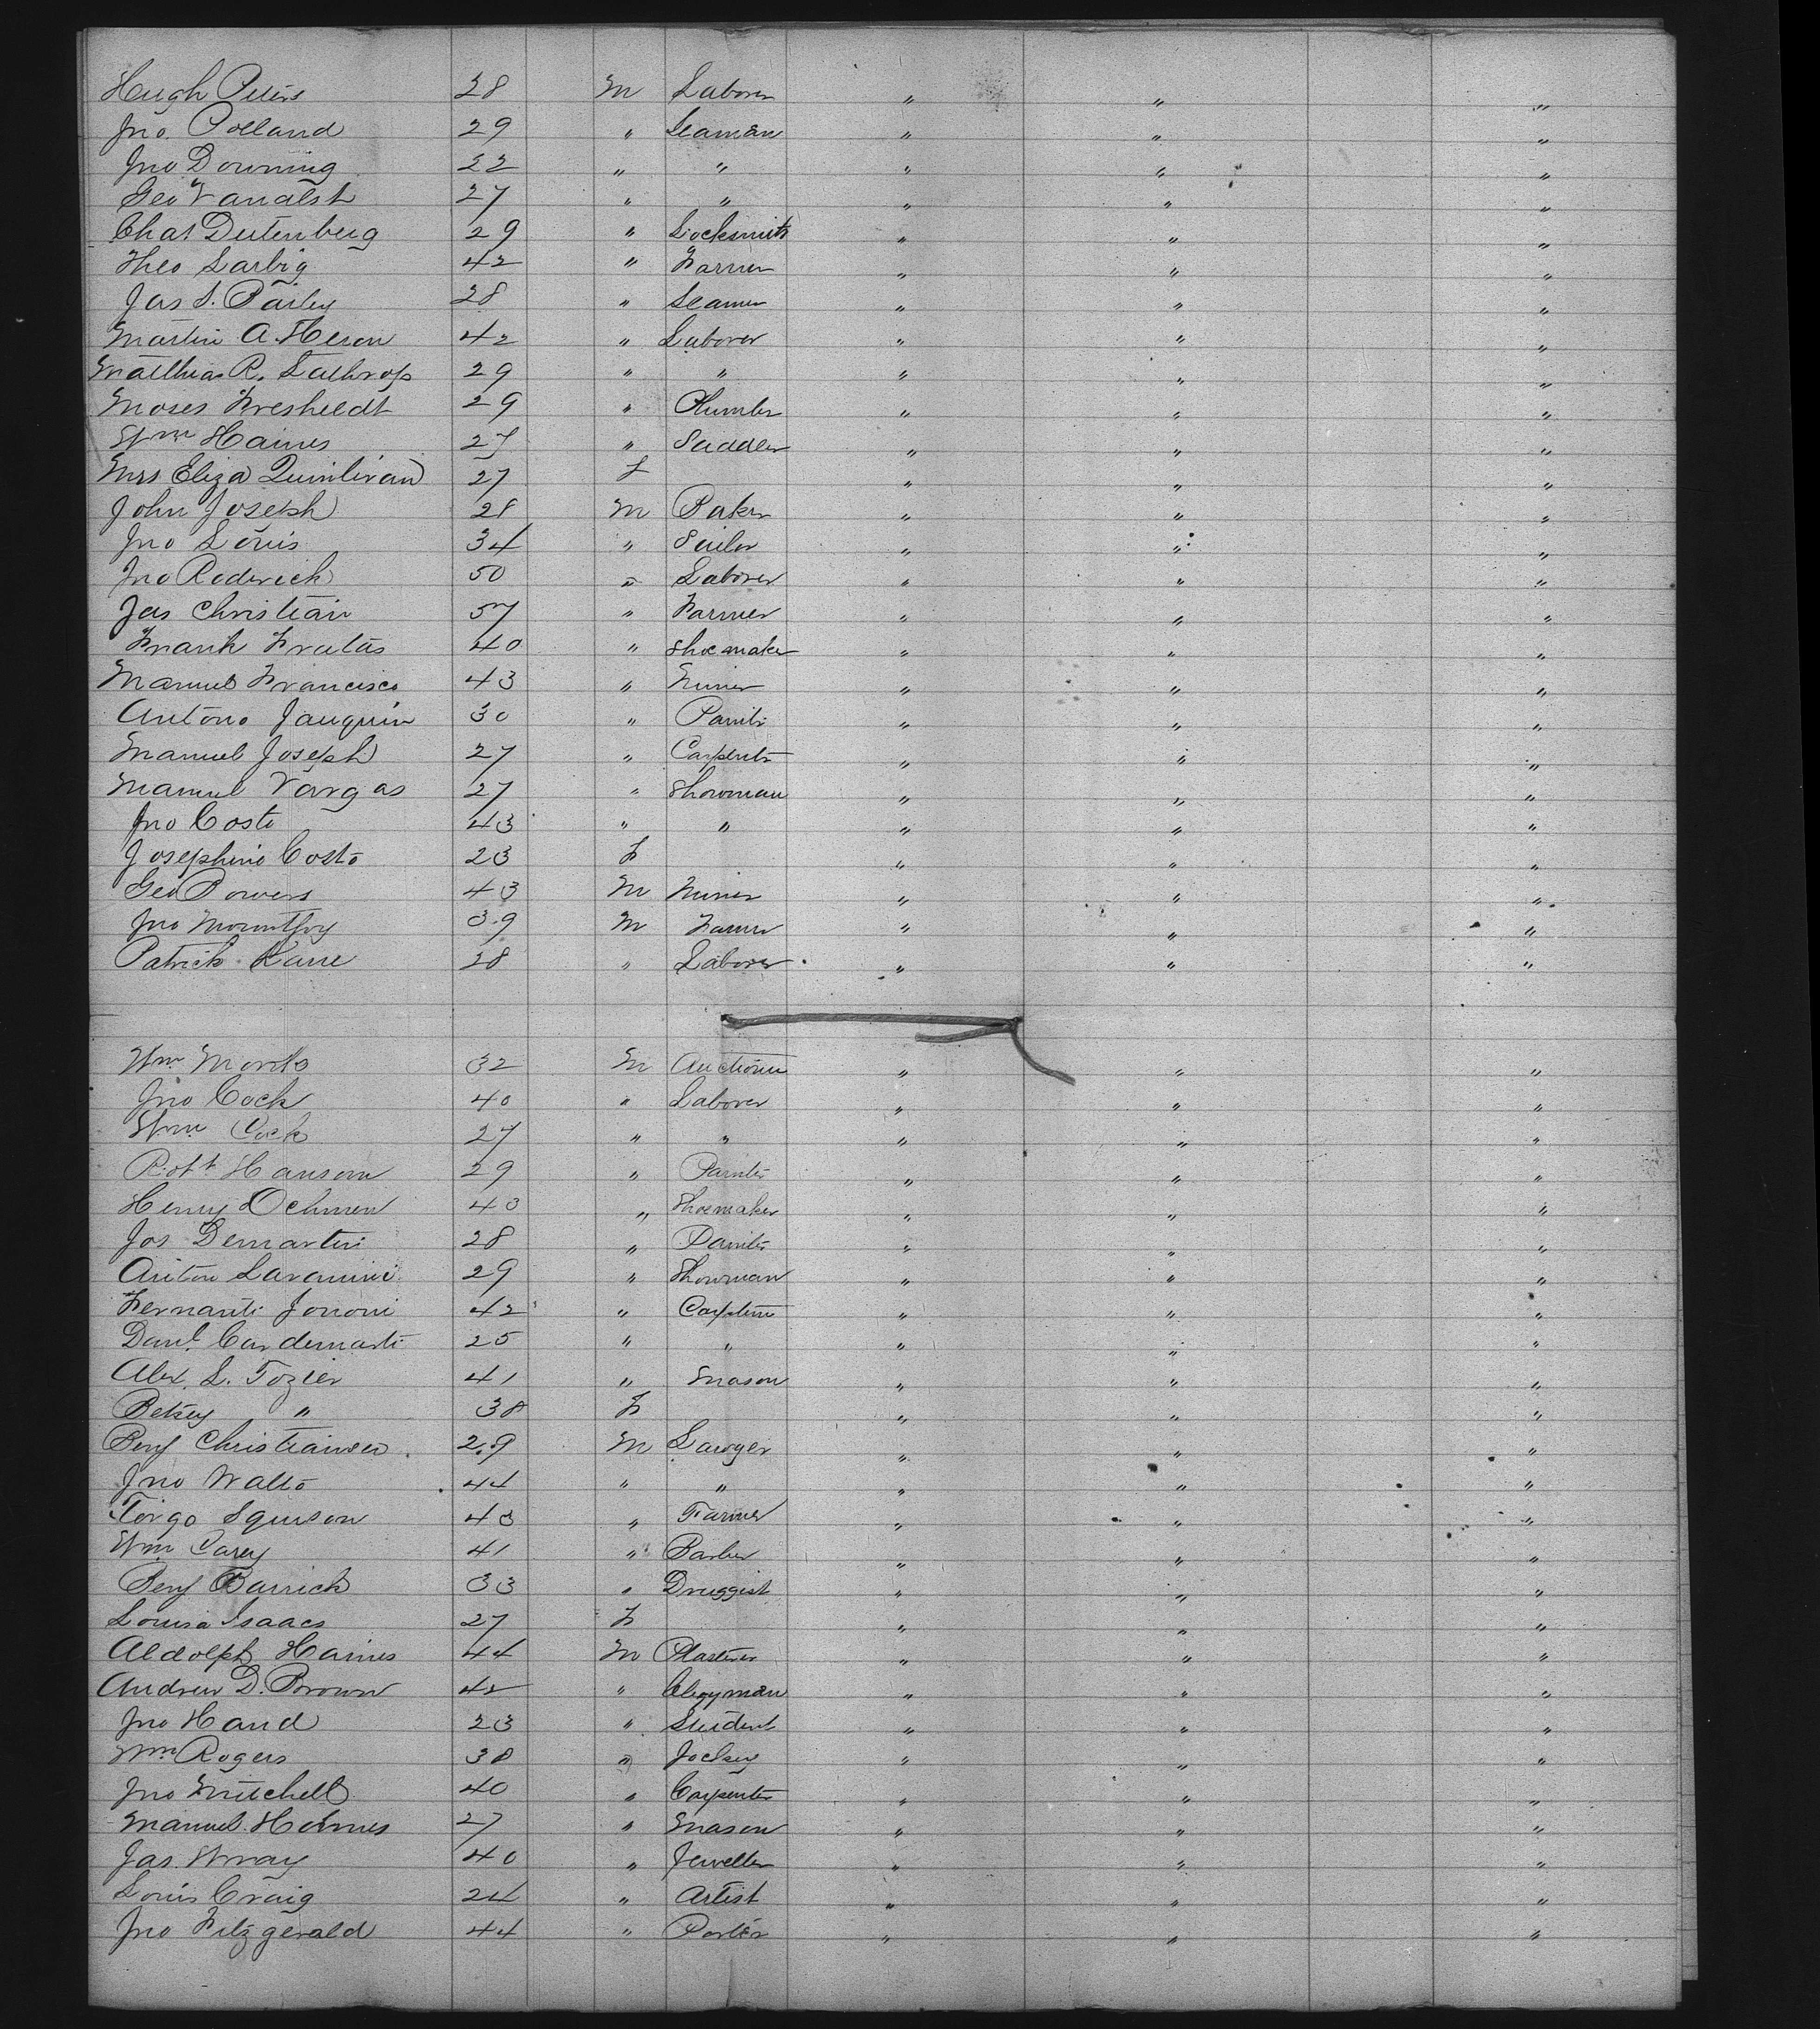 Hugh Peters 28 M Laborer " " "
Jno. Polland 29 " Seaman " " "
Jno Downing 22 " " " " "
Geo Vanalst 27 " " " " "
Chas Deutenberg 29 " Locksmith " " "
Theo Larbig 42 " Farmer " " "
Jas S. Bailey 28 " Seaman " " "
Martin A. Heron 42 " Laborer " " "
Matthias R. Lathrop 29 " " " " "
Moses Fresheldt 29 " Plumber " " "
Wm Haines 27 " Saddler " " "
Mrs Eliza Quinlivan 27 F " " "
John Joseph 28 M Baker " " "
Jno Louis 34 " Sailor " " "
Jno Roderick 50 " Laborer " " "
Jas Christian 57 " Farmer " " "
Frank Fratas 40 " Shoemaker " " "
Manuel Francisco 43 " Miner " " "
Antono Jauquin 30 " Painter " " "
Manuel Joseph 27 " Carpenter " " "
Manuel Vargas 27 " Showman " " "
Jno Costo 43 " " " " "
Josephine Costo 23 F " " "
Geo Powers 43 M Miner " " "
Jno Mountjoy 39 M Farmer " " "
Patrick Kane 28 " Laborer " " "
Wm Morits 32 M Auctioner " " "
Jno Cock 40 " Laborer " " "
Wm Cock 27 " " " " "
Robt Hansom 29 " Painter " " "
Henry Ochmen 43 " Shoemaker " " "
Jos Demartini 28 " Painter " " "
Anton Laramini 29 " Showman " " "
Fernanti Jononi 42 " Carpenter " " "
Danl Cardemarti 25 " " " " "
Alex. L. Tozier 41 " Mason " " "
Betsey " 38 F " " "
Benj Christiansen 29 M Lawyer " " "
Jno Walto 44 " " " " "
Torgo Sguison 43 " Farmer " " "
Wm Carey 41 " Barber " " "
Benj Barrick 33 " Druggist " " "
Louisa Isaacs 27 F " " "
Aldolph Haines 44 M Plasterer " " "
Andrew D. Brown 42 " Clergyman " " "
Jno Hand 23 " Student " " "
Wm Rogers 38 " Jockey " " "
Jno Mitchell 40 " Carpenter " " "
Manuel Holmes 27 " Mason " " "
Jas. Wray 40 " Jeweller " " "
Louis Craig 24 " Artist " " "
Jno Fitzgerald 44 " Porter " " "